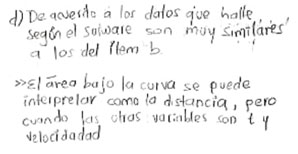 d) De acuerdo a los datos que halle
según el sofware son muy similares
a los del ítem b
>>El área bajo la curva se puede
interpretar como la distancia, pero
cuando las otras variables son t y
velocidadad